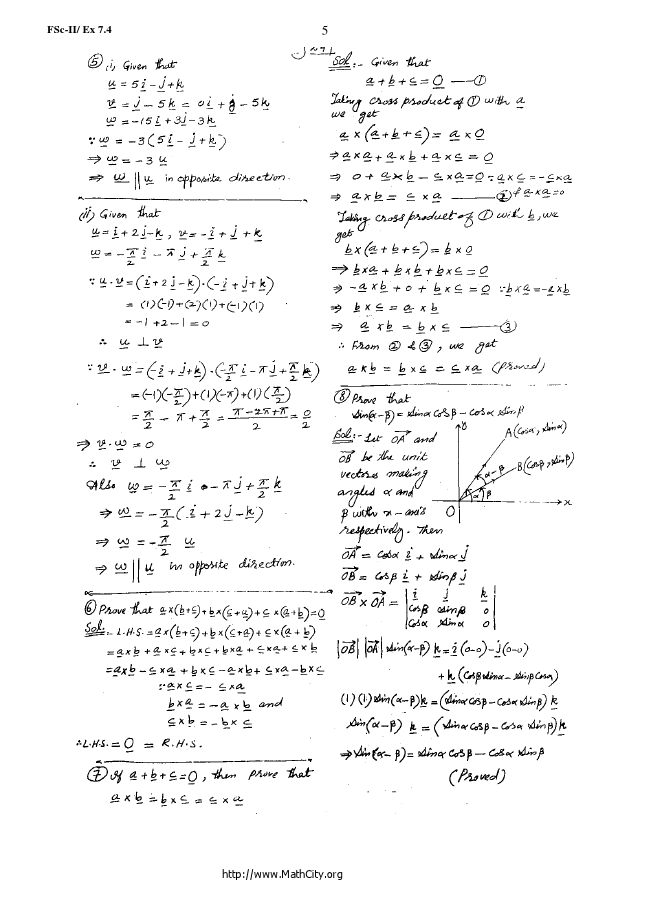 FSc-II/ Ex 7.4
5
⑤ (i) Given that
u = 5i - j + k
v = j - 5k = 0i + j - 5k
w = -15i + 3j - 3k
∵ w = -3(5i - j + k)
⇒ w = -3 u
⇒ w || u in opposite direction.
(ii) Given that
u = i + 2j - k, v = -i + j + k
w = -π/2 i - π j + π/2 k
∵ u · v = (i + 2j - k) · (-i + j + k)
= (1)(-1) + (2)(1) + (-1)(1)
= -1 + 2 - 1 = 0
∴ u ⊥ v
∵ v · w = (-i + j + k) · (-π/2 i - π j + π/2 k)
= (-1)(-π/2) + (1)(-π) + (1)(π/2)
= π/2 - π + π/2 = (π - 2π + π)/2 = 0/2
⇒ v · w = 0
∴ v ⊥ w
Also w = -π/2 i - π j + π/2 k
⇒ w = -π/2 (i + 2j - k)
⇒ w = -π/2 u
⇒ w || u in opposite direction.
⑥ Prove that a×(b+c)+b×(c+a)+c×(a+b)=0
Sol:- L.H.S. = a×(b+c)+b×(c+a)+c×(a+b)
= a×b + a×c + b×c + b×a + c×a + c×b
= a×b - c×a + b×c - a×b + c×a - b×c
∵ a×c = - c×a
b×a = - a×b and
c×b = - b×c
∴ L.H.S. = 0 = R.H.S.
⑦ If a+b+c=0, then prove that
a×b = b×c = c×a
Sol:- Given that
a+b+c = 0 —— ①
Taking cross product of ① with a
we get
a × (a+b+c) = a×0
⇒ a×a + a×b + a×c = 0
⇒ 0 + a×b - c×a = 0 ∵ a×c = -c×a
⇒ a×b = c×a —— ② & a×a=0
Taking cross product of ① with b, we
get
b×(a+b+c) = b×0
⇒ b×a + b×b + b×c = 0
⇒ -a×b + 0 + b×c = 0 ∵ b×a = -a×b
⇒ b×c = a×b
⇒ a×b = b×c —— ③
∴ From ② & ③, we get
a×b = b×c = c×a (Proved)
⑧ Prove that
sin(α-β) = sinα cosβ - cosα sinβ
y
A(cosα, sinα)
B(cosβ, sinβ)
α-β
α
β
x
O
Sol:- Let OA and
OB be the unit
vectors making
angles α and
β with x-axis
respectively. Then
OA = cosα i + sinα j
OB = cosβ i + sinβ j
OB × OA = | i j k |
| cosβ sinβ 0 |
| cosα sinα 0 |
|OB| |OA| sin(α-β) k = i(0-0) - j(0-0)
+ k (cosβ sinα - sinβ cosα)
(1)(1) sin(α-β) k = (sinα cosβ - cosα sinβ) k
sin(α-β) k = (sinα cosβ - cosα sinβ) k
⇒ sin(α-β) = sinα cosβ - cosα sinβ
(Proved)
http://www.MathCity.org